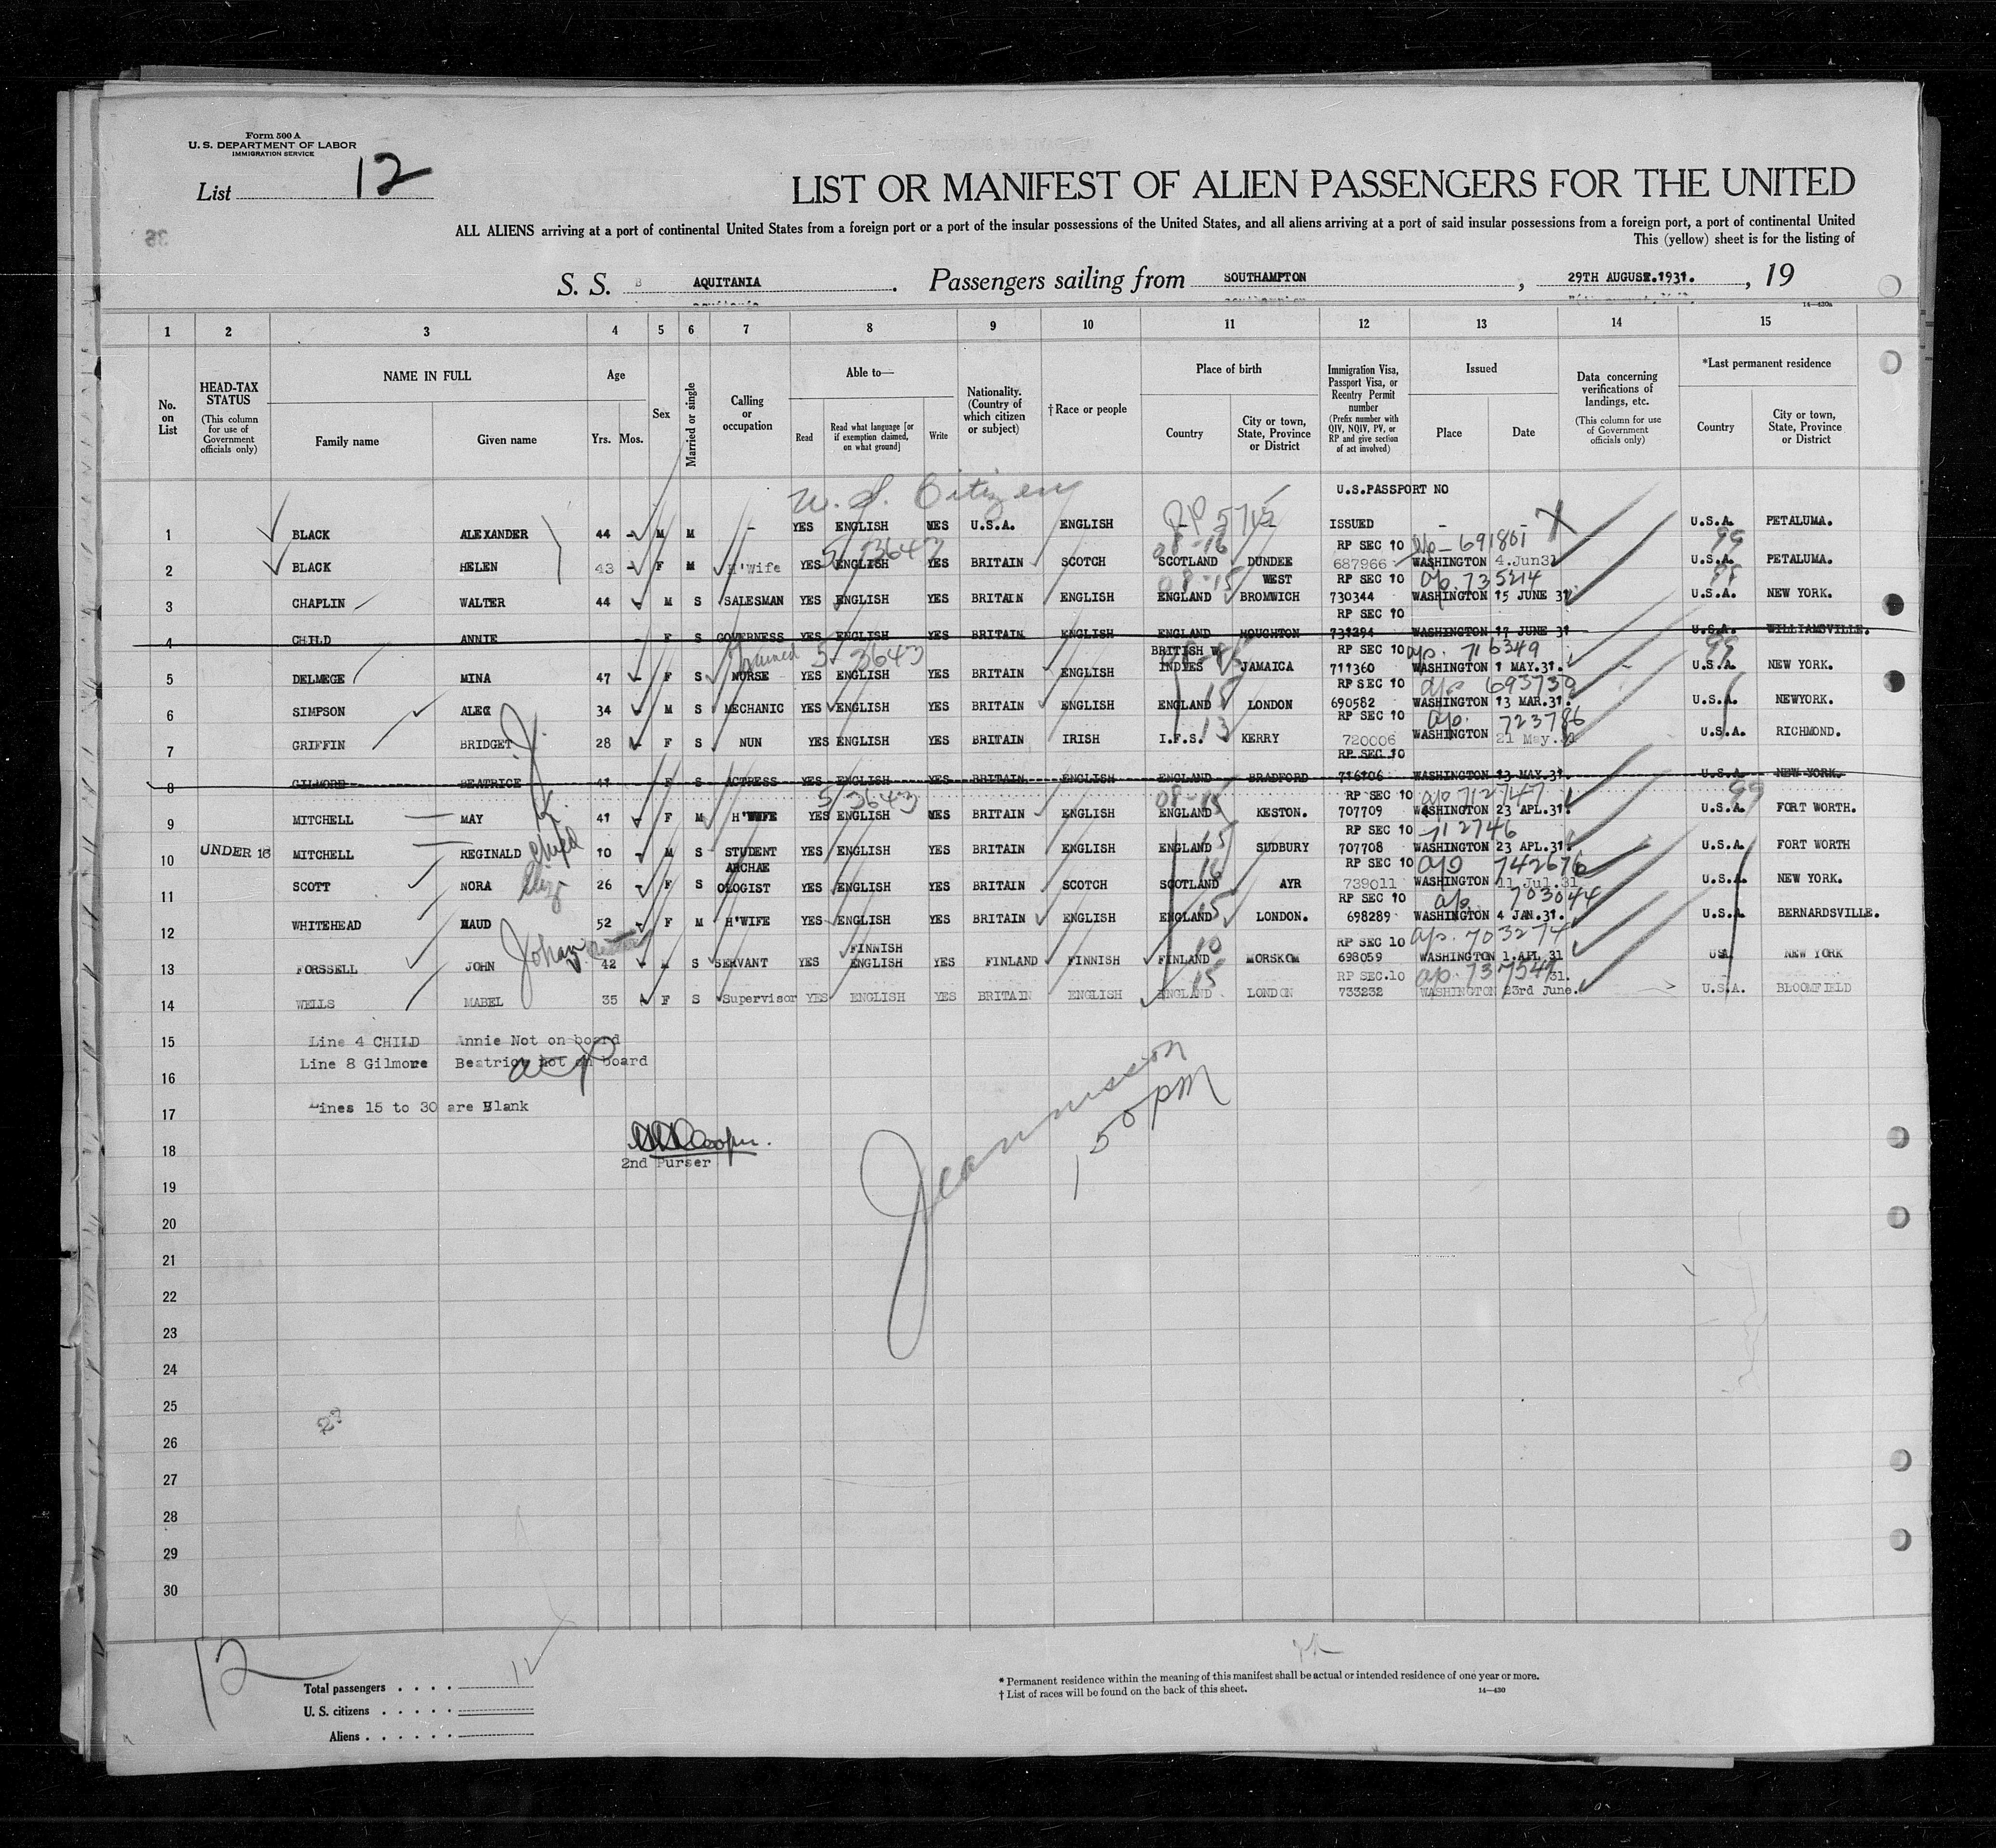 Form 500 A
U. S. DEPARTMENT OF LABOR
IMMIGRATION SERVICE
List 12
LIST OR MANIFEST OF ALIEN PASSENGERS FOR THE UNITED
ALL ALIENS arriving at a port of continental United States from a foreign port or a port of the insular possessions of the United States, and all aliens arriving at a port of said insular possessions from a foreign port, a port of continental United
This (yellow) sheet is for the listing of
S. S. AQUITANIA . Passengers sailing from SOUTHAMPTON , 29TH AUGUST.1931. , 19
14—430a
1 2 3 4 5 6 7 8 9 10 11 12 13 14 15
No. on List
HEAD-TAX STATUS (This column for use of Government officials only)
NAME IN FULL Family name Given name
Age Yrs. Mos.
Sex
Married or single
Calling or occupation
Able to— Read Read what language [or if exemption claimed, on what ground] Write
Nationality. (Country of which citizen or subject)
† Race or people
Place of birth Country City or town, State, Province or District
Immigration Visa, Passport Visa, or Reentry Permit number (Prefix number with QIV, NQIV, PV, or RP and give section of act involved)
Issued Place Date
Data concerning verifications of landings, etc. (This column for use of Government officials only)
*Last permanent residence Country City or town, State, Province or District
U. S. Citizen U.S.PASSPORT NO
1 BLACK ALEXANDER 44 M M - YES ENGLISH YES U.S.A. ENGLISH - - ISSUED - - U.S.A. PETALUMA.
5 3643 08-16 RP SEC 10 691801 99
2 BLACK HELEN 43 F M H'Wife YES ENGLISH YES BRITAIN SCOTCH SCOTLAND DUNDEE 687966 WASHINGTON 4.Jun31 U.S.A. PETALUMA.
08-15 WEST RP SEC 10 ap. 735214
3 CHAPLIN WALTER 44 M S SALESMAN YES ENGLISH YES BRITAIN ENGLISH ENGLAND BROMWICH 730344 WASHINGTON 15 JUNE 31 U.S.A. NEW YORK.
RP SEC 10
4 CHILD ANNIE F S GOVERNESS YES ENGLISH YES BRITAIN ENGLISH ENGLAND HOUGHTON 731294 WASHINGTON 17 JUNE 31 U.S.A. WILLIAMSVILLE.
5 3643 BRITISH W. RP SEC 10 ap. 716349 99
5 DELMEGE MINA 47 F S NURSE YES ENGLISH YES BRITAIN ENGLISH INDIES JAMAICA 711360 WASHINGTON 1 MAY.31. U.S.A. NEW YORK.
RP SEC 10 ap 693739
6 SIMPSON ALEC 34 M S MECHANIC YES ENGLISH YES BRITAIN ENGLISH ENGLAND 15 LONDON 690582 WASHINGTON 13 MAR.31. U.S.A. NEWYORK.
RP SEC 10 ap. 723786
7 GRIFFIN BRIDGET J. 28 F S NUN YES ENGLISH YES BRITAIN IRISH I.F.S. 13 KERRY 720006 WASHINGTON 21 May.31 U.S.A. RICHMOND.
RP SEC 10
8 GILMORE BEATRICE 41 F S ACTRESS YES ENGLISH YES BRITAIN ENGLISH ENGLAND BRADFORD 716106 WASHINGTON 13 MAY.31. U.S.A NEW YORK.
5 3643 08-15 RP SEC 10 ap 712747 99
9 MITCHELL MAY K. 41 F M H'WIFE YES ENGLISH YES BRITAIN ENGLISH ENGLAND KESTON. 707709 WASHINGTON 23 APL.31. U.S.A. FORT WORTH.
RP SEC 10 712746
10 UNDER 16 MITCHELL REGINALD child 10 M S STUDENT YES ENGLISH YES BRITAIN ENGLISH ENGLAND 15 SUDBURY 707708 WASHINGTON 23 APL.31. U.S.A. FORT WORTH
ARCHAE RP SEC 10 ap 742676
11 SCOTT NORA 26 F S OLOGIST YES ENGLISH YES BRITAIN SCOTCH SCOTLAND 16 AYR 739011 WASHINGTON 11 Jul.31. U.S.A. NEW YORK.
RP SEC 10 ap. 703044
12 WHITEHEAD MAUD 52 F M H'WIFE YES ENGLISH YES BRITAIN ENGLISH ENGLAND 15 LONDON. 698289 WASHINGTON 4 JAN.31. U.S.A. BERNARDSVILLE.
FINNISH RP SEC 10 ap. 703274
13 FORSSELL JOHN Johan 42 M S SERVANT YES ENGLISH YES FINLAND FINNISH FINLAND 10 MORSKOM 698059 WASHINGTON 1.APL 31 USA NEW YORK
RP SEC.10 ap. 737547 31.
14 WELLS MABEL 35 F S Supervisor YES ENGLISH YES BRITAIN ENGLISH ENGLAND 15 LONDON 733232 WASHINGTON 23rd June. U.S.A. BLOOMFIELD
15 Line 4 CHILD Annie Not on board
Line 8 Gilmore Beatrice not on board
16
17 Lines 15 to 30 are Blank
18
2nd Purser
1 50 PM
19
20
21
22
23
24
25
26
27
28
29
30
12
Total passengers . . . . 12
U. S. citizens . . . . .
Aliens . . . . . .
* Permanent residence within the meaning of this manifest shall be actual or intended residence of one year or more.
† List of races will be found on the back of this sheet.
14—430